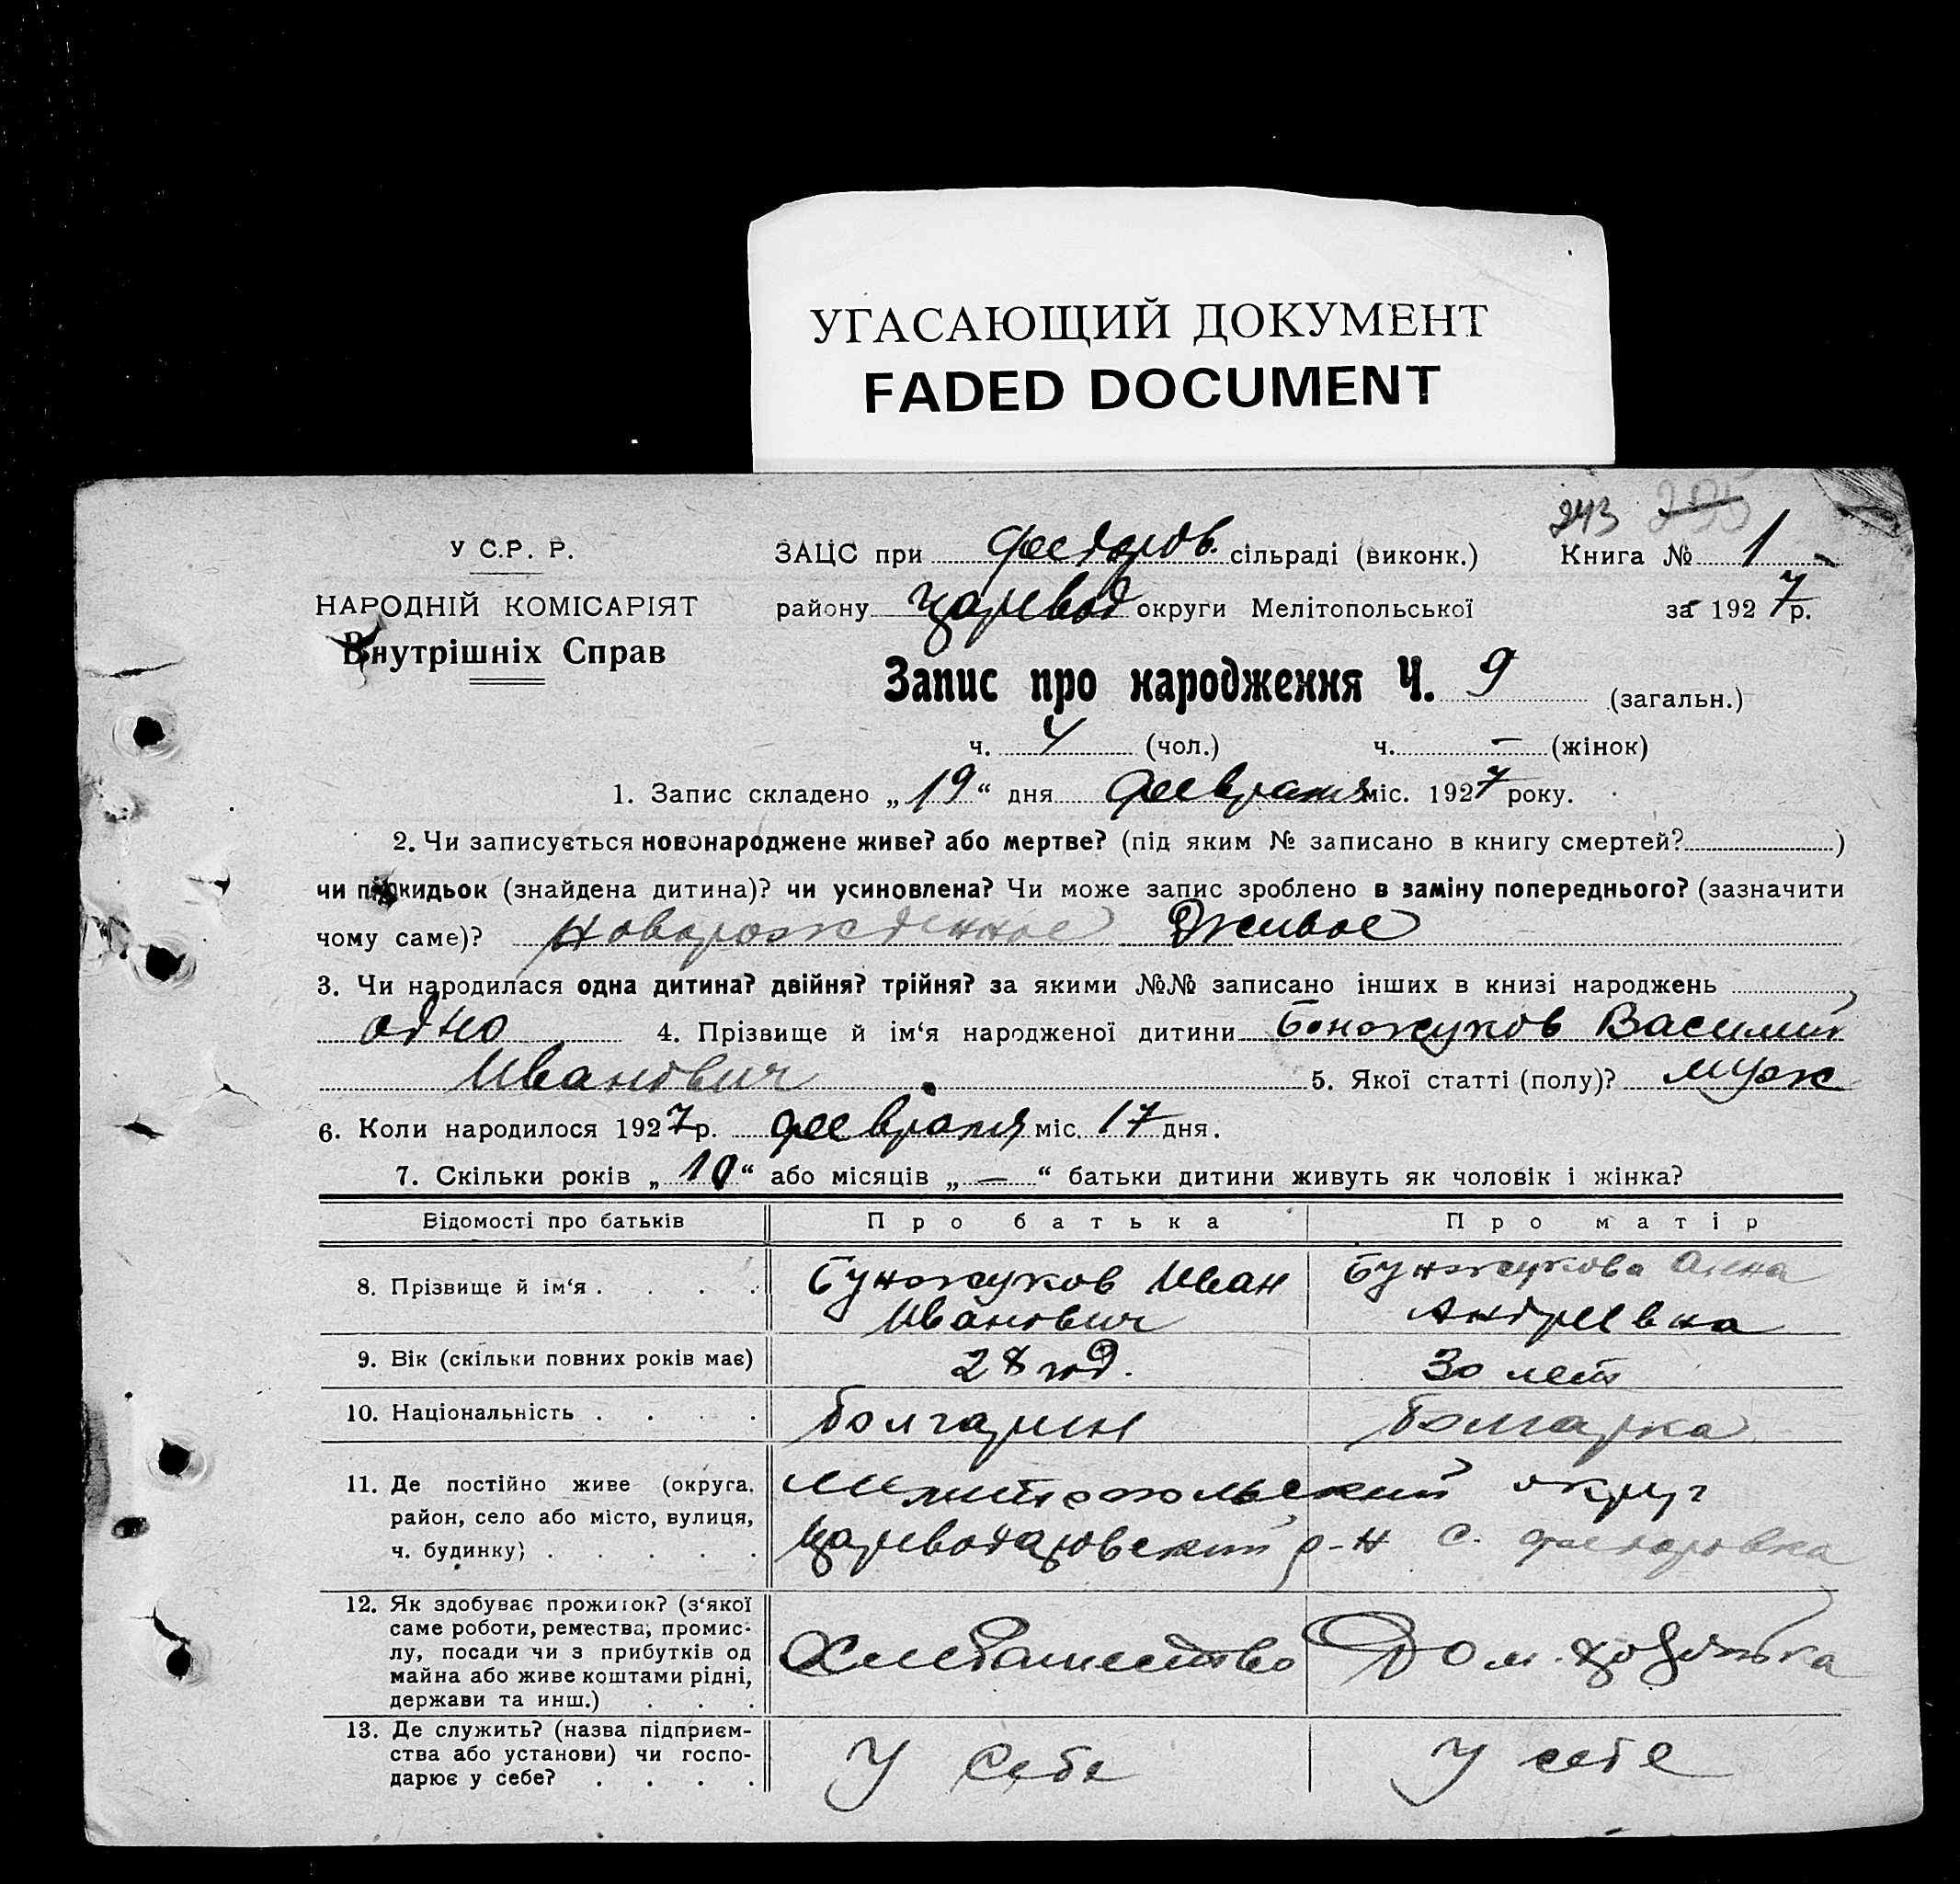 УГАСАЮЩИЙ ДОКУМЕНТ
FADED DOCUMENT
243 235
У С.Р. Р.
ЗАЦС при Федоров. сільраді (виконк.) Книга № 1
НАРОДНІЙ КОМІСАРІЯТ
району Царевод округи Мелітопольської за 1927 р.
Внутрішніх Справ
Запис про народження Ч. 9 (загальн.)
ч. 4 (чол.) ч. - (жінок)
1. Запис складено „19“ дня февраля міс. 1927 року.
2. Чи записується новонароджене живе? або мертве? (під яким № записано в книгу смертей? )
чи підкидьок (знайдена дитина)? чи усиновлена? Чи може запис зроблено в заміну попереднього? (зазначити
чому саме)? Новорожденное Живое
3. Чи народилася одна дитина? двійня? трійня? за якими №№ записано інших в книзі народжень
одно 4. Прізвище й ім‘я народженої дитини Бонжуков Василий
Иванович 5. Якої статті (полу)? муж
6. Коли народилося 1927 р. февраля міс. 17 дня.
7. Скільки років „10“ або місяців „—“ батьки дитини живуть як чоловік і жінка?
Відомості про батьків Про батька Про матір
8. Прізвище й ім‘я . . . . Бунжуков Иван Иванович Бунжукова Анна Андреевна
9. Вік (скільки повних років має) 28 год. 30 лет
10. Національність . . . . Болгарин Болгарка
11. Де постійно живе (округа,
район, село або місто, вулиця,
ч. будинку) . . . . .
Мелитопольский округ
Цареводаровский р-н с. Федоровка
12. Як здобуває прожиток? (з‘якої
саме роботи, ремества, промис-
лу, посади чи з прибутків од
майна або живе коштами рідні,
держави та инш.) . . .
Хлебопашество Дом. хозяйка
13. Де служить? (назва підприєм-
ства або установи) чи госпо-
дарює у себе? . . . .
У себе У себе